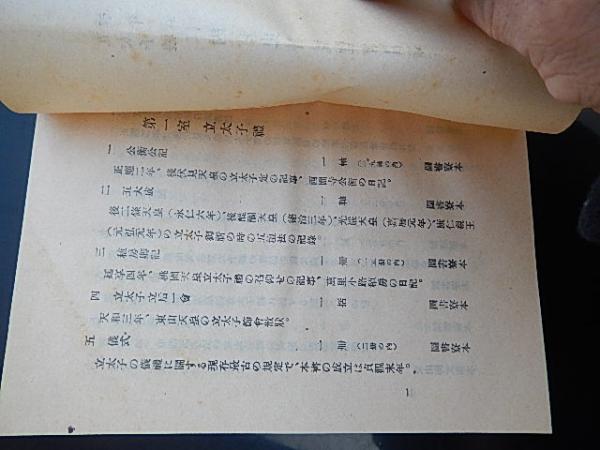 第一室 立太子禮
一 公衡公記 一軸(一九軸の内) 圖書寮本
正應二年、後伏見天皇の立太子定の記事、西園寺公衡の日記。
二 五大成 一軸 圖書寮本
後二條天皇(永仁六年)、後醍醐天皇(德治三年)、光嚴天皇(嘉曆元年)、康仁親王
(元弘元年)の立太子御祈の時の五壇法の記錄。
三 稙房卿記 一冊 圖書寮本
延享四年、桃園天皇立太子禮の召仰せの記事、萬里小路稙房の日記。
四 立太子立后一會 一括 圖書寮本
天和三年、東山天皇の立太子節會散狀。
五 儀式 一冊 圖書寮本
立太子の儀禮に關する現存最古の規定で、本書の成立は貞觀末年。
一